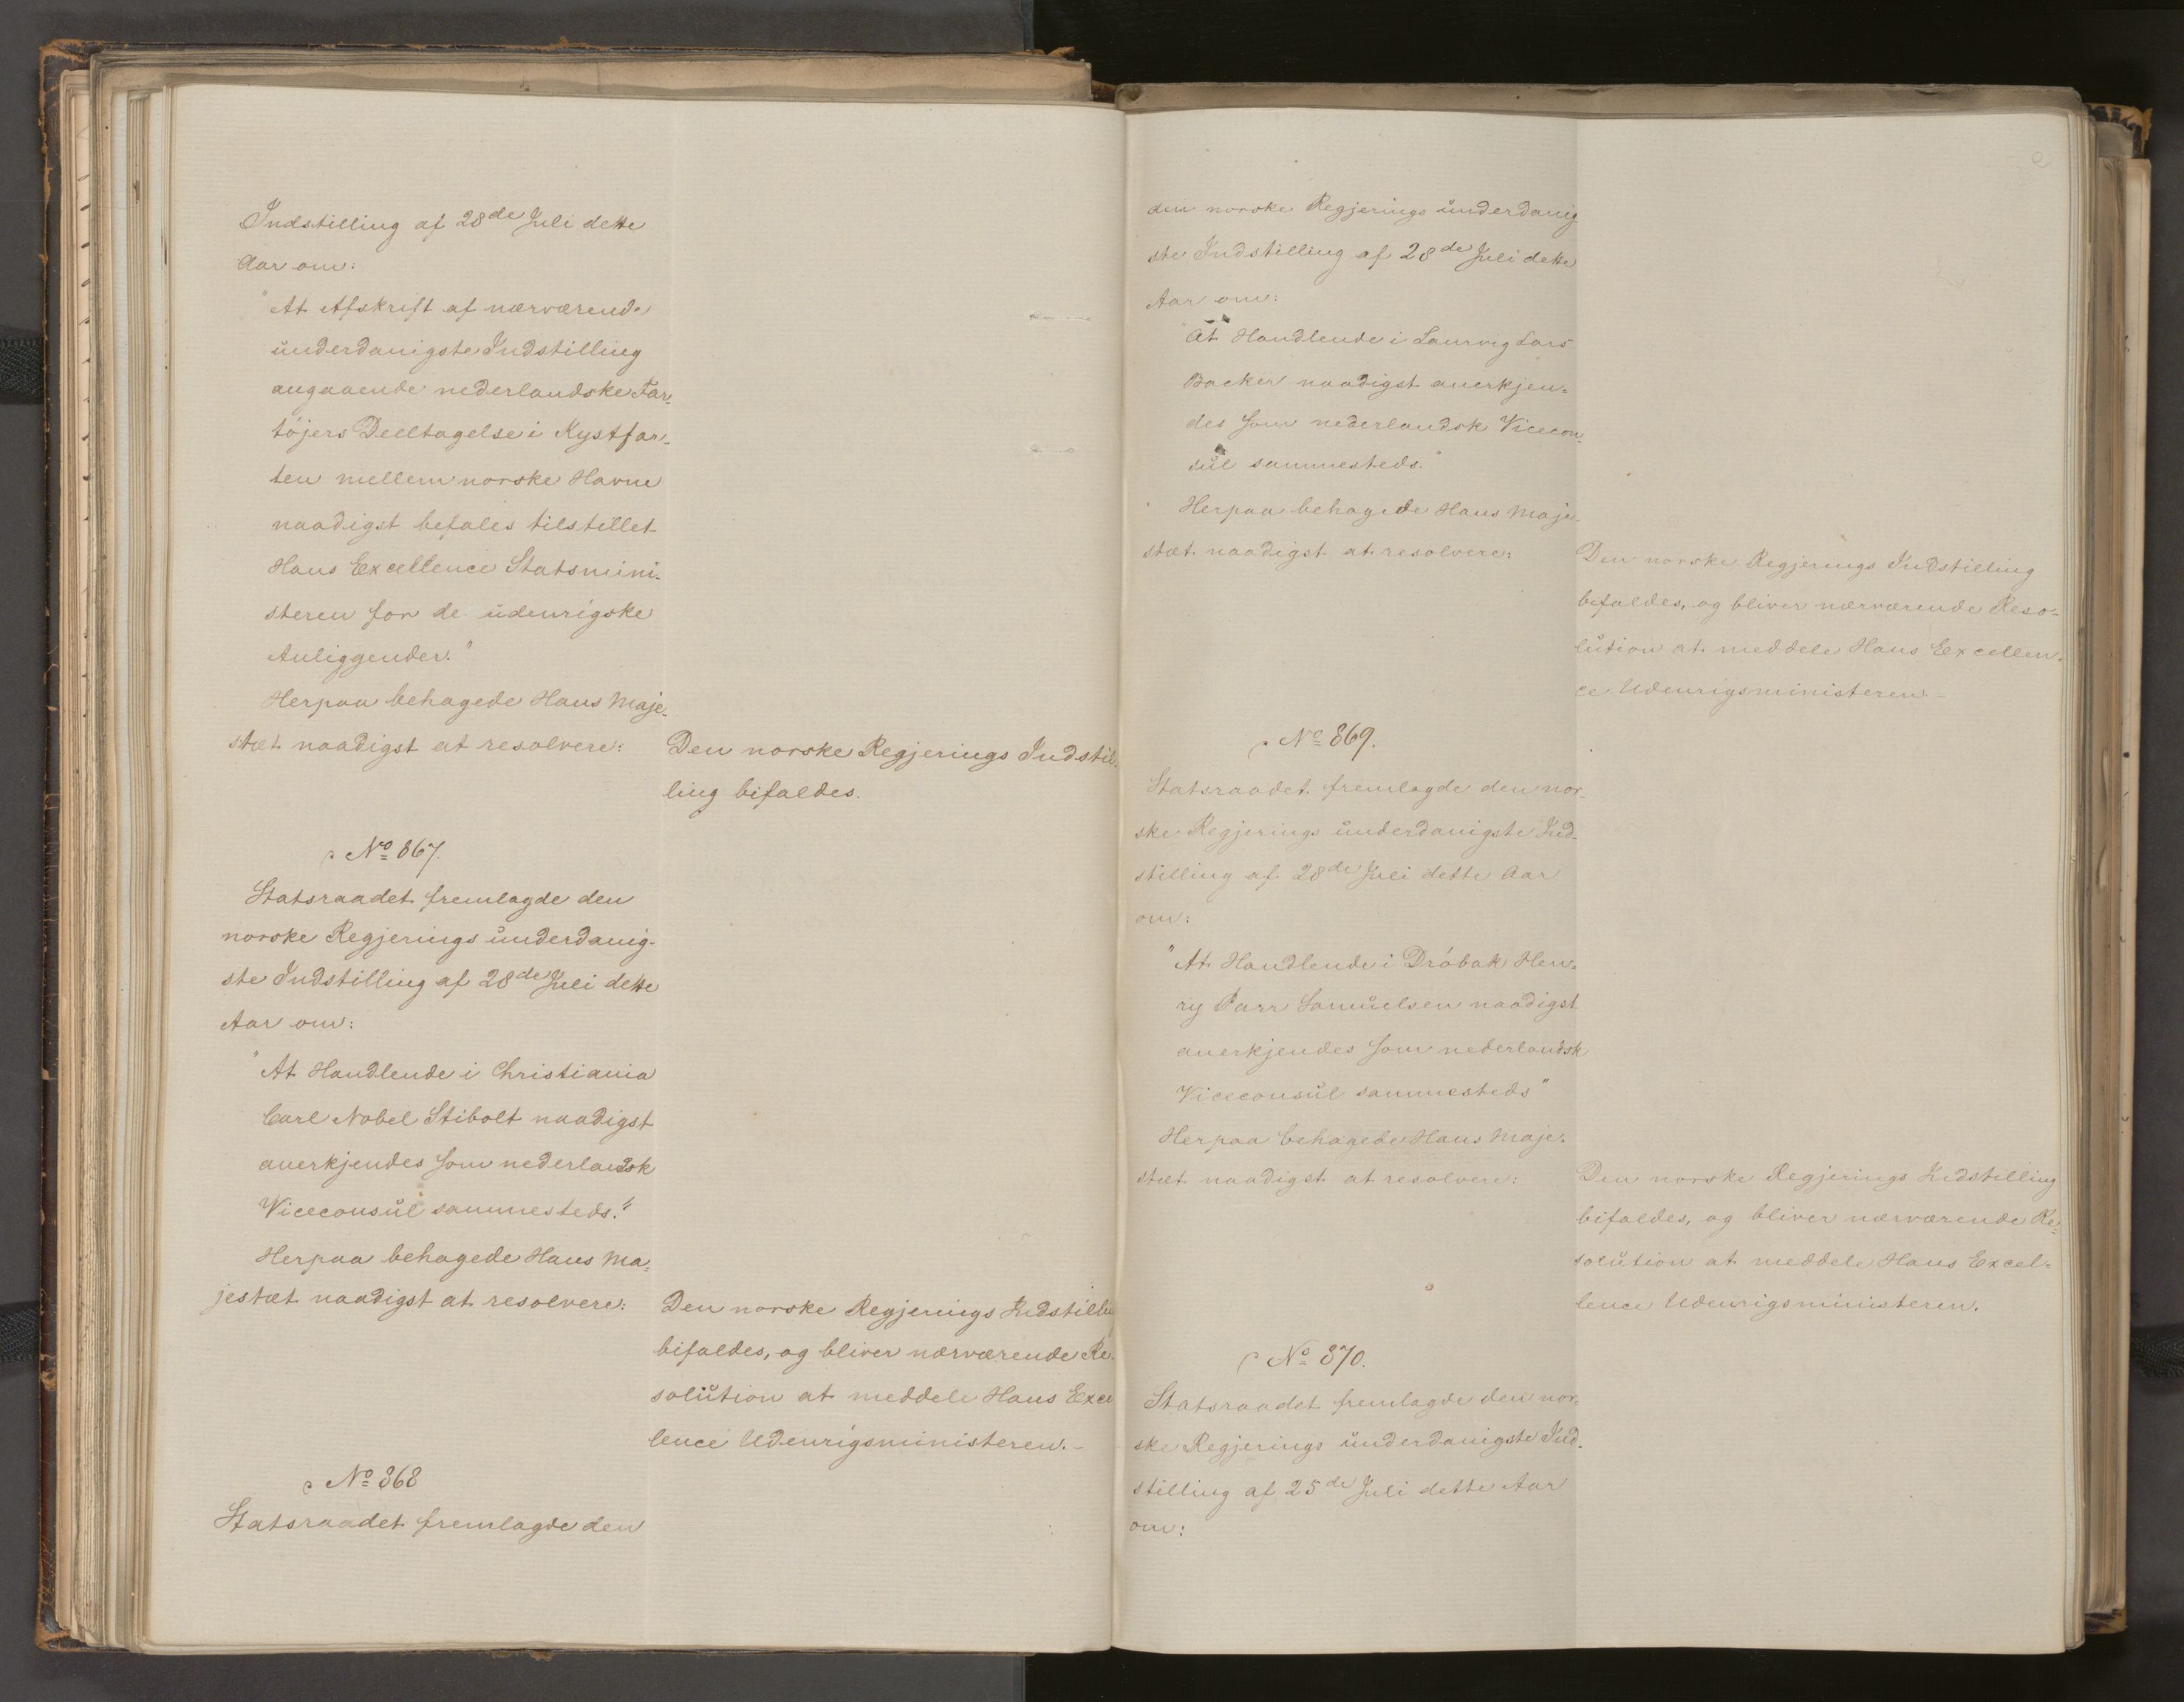 Indstilling af 28de Juli dette
Aar om:
"At Afskrift af nærværende
underdanigste Indstilling
angaaende nederlandske Far-
töjers Deeltagelse i Kystfar-
ten mellem norske Havne
naadigst befales tilstillet
Hans Excellence Statsmini-
steren for de udenrigske
Anliggender."
Herpaa behagede Hans Maje-
stæt naadigst at resolvere:
Den norske Regjerings Indstil-
ling bifaldes.
No 867.
Statsraadet fremlagde den
norske Regjerings underdanig-
ste Indstilling af 28de Juli dette
Aar om:
"At Handlende i Christiania
Carl Nobel Stibolt naadigst
anerkjendes som nederlandsk
Viceconsul sammesteds."
Herpaa behagede Hans Ma-
jestæt naadigst at resolvere:
Den norske Regjerings Indstilling
bifaldes, og bliver nærværende Re-
solution at meddele Hans Excel
lence Udenrigsministeren.-
No 868
Statsraadet fremlagde den
den norske Regjerings underdanig
ste Indstilling af 28de Juli dette
Aar om:
"At Handlende i Laurvig Lars
Backer naadigst anerkjen-
des som nederlandsk Vicecon-
sul sammesteds."
Herpaa behagede Hans Maje-
stæt naadigst at resolvere:
Den norske Regjerings Indstilling
bifaldes, og bliver nærværende Reso-
lution at meddele Hans Excellen-
ce Udenrigsministeren-
No 869.
Statsraadet fremlagde den nor-
ske Regjerings underdanigste Ind-
stilling af 28de Juli dette Aar
om:
"At Handlende i Dröbak Hen-
ry Parr Samuelsen naadigst
anerkjendes som nederlandsk
Viceconsul sammesteds"
Herpaa behagede Hans Maje-
stæt naadigst at resolvere:
Den norske Regjerings Indstilling
bifaldes, og bliver nærværende Re-
solution at meddele Hans Excel-
lence Udenrigsministeren.
No 870.
Statsraadet fremlagde den nor-
ske Regjerings underdanigste Ind-
stilling af 25de Juli dette Aar
om: